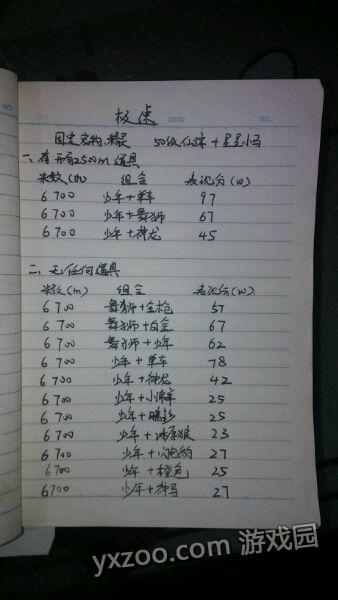 NO.
极速
DATE
NO.
固定宠物.精灵 50级仙踪+星星小马
一、有开局2500m道具
米数(m) 组合 表现分(w)
6700 少年+单车 97
6700 少年+舞狮 67
6700 少年+神龙 45
二、无任何道具
米数(m) 组合 表现分(w)
6700 舞狮+金枪 57
6700 舞狮+白金 67
6700 舞狮+少年 62
6700 少年+单车 78
6700 少年+神龙 42
6700 少年+ 25
6700 少年+魅影 25
6700 少年+ 23
6700 少年+闪电豹 27
6700 少年+橙色 25
6700 少年+神马 27
yxzoo.com 游戏园